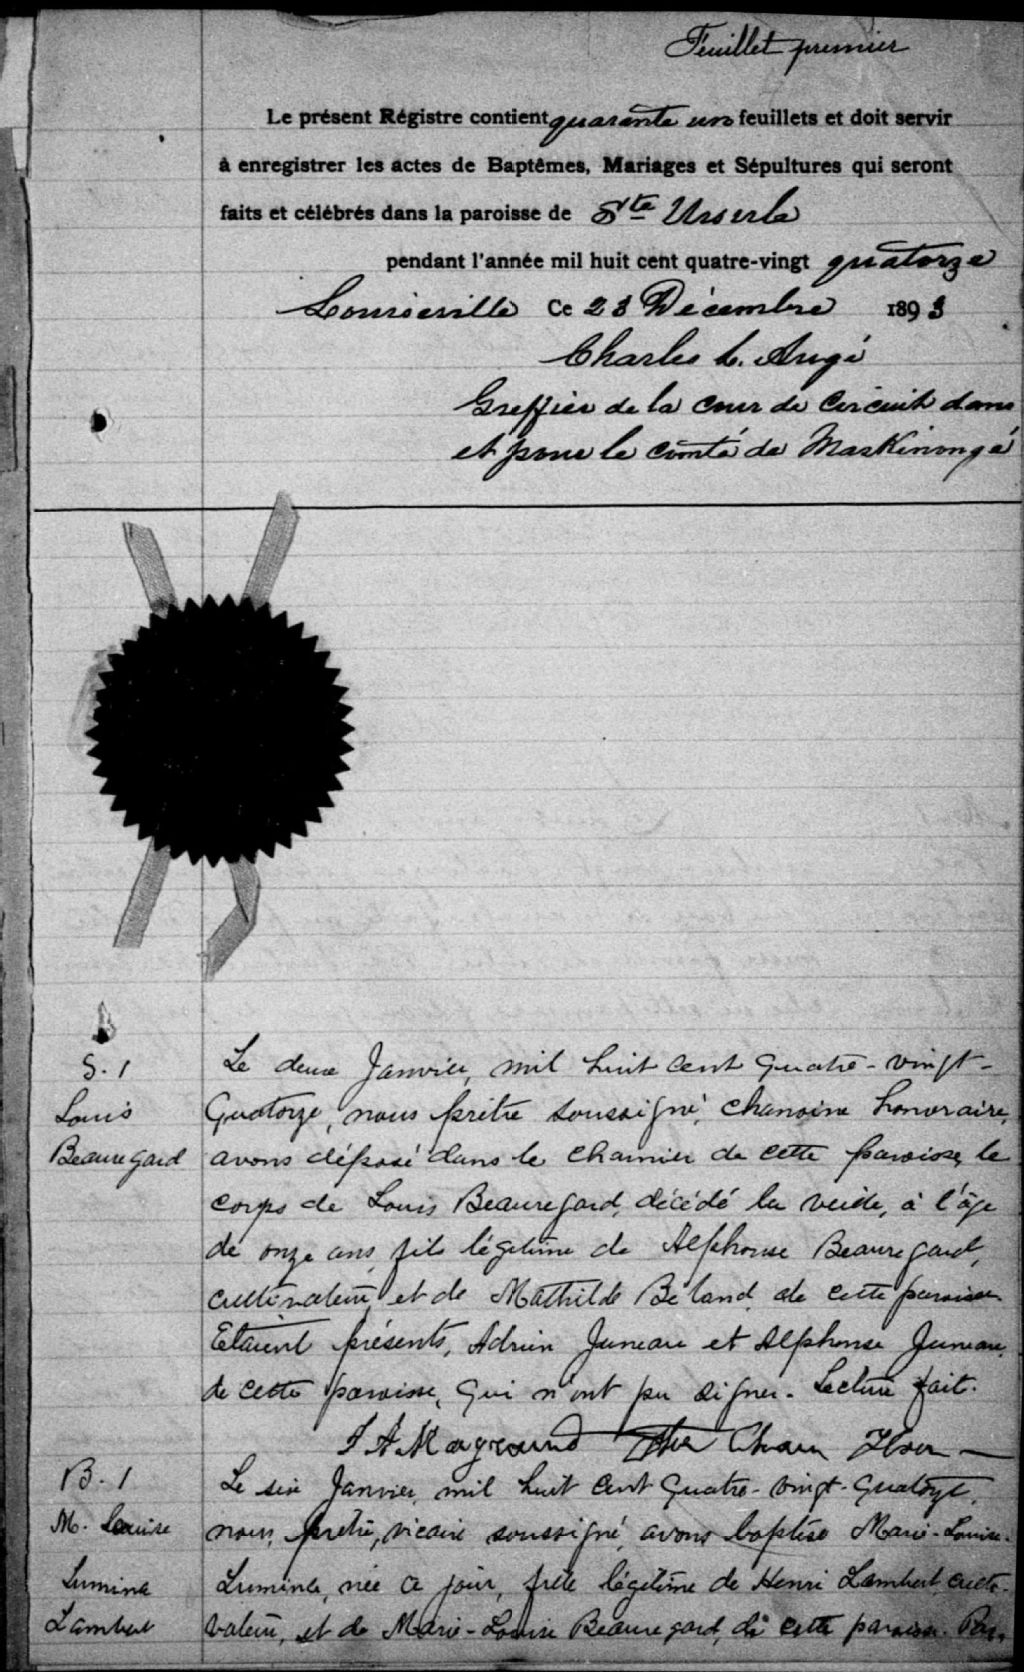 Feuillet premier
Le présent Régistre contient quarante un feuillets et doit servir
à enregistrer les actes de Baptêmes, Mariages et Sépultures qui seront
faits et célébrés dans la paroisse de Ste Ursule
pendant l'année mil huit cent quatre-vingt quatorze
Louiseville Ce 23 Décembre 1893
Charles L. Augé
Greffier de la cour de circuit dans
et pour le comté de Maskinongé
S. 1
Louis
Beauregard
Le deux Janvier, mil huit cent Quatre-vingt-
Quatorze, nous prêtre soussigné, chanoine honoraire,
avons déposé dans le charnier de cette paroisse, le
corps de Louis Beauregard, décédé la veille, à l'âge
de onze ans, fils légitime de Alphonse Beauregard,
cultivateur, et de Mathilde Béland, de cette paroisse.
Etaient présents, Adrien Juneau et Alphonse Juneau,
de cette paroisse, qui n'ont pu signer. Lecture faite.
B. 1
M. Louise
Lumina
Lambert
Le six Janvier, mil huit cent Quatre-vingt-Quatorze,
nous, prêtre, vicaire soussigné, avons baptisé Marie-Louise-
Lumina, née ce jour, fille légitime de Henri Lambert, culti-
vateur, et de Marie-Louise Beauregard, de cette paroisse. Par-